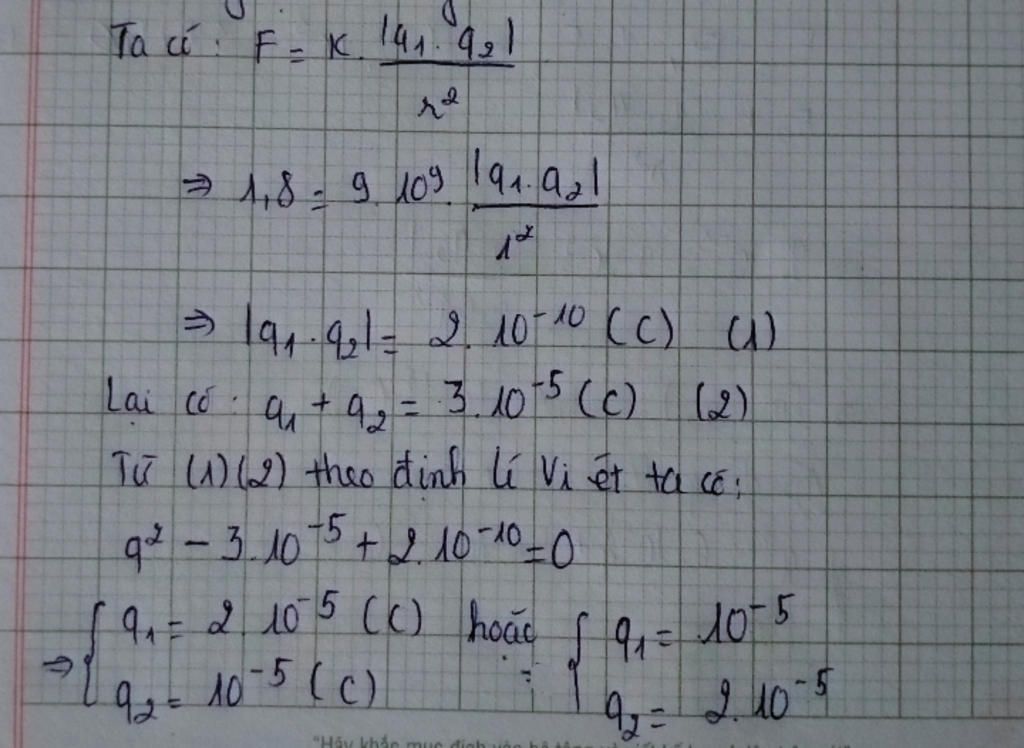 Ta có: F = K. |q₁. q₂| / r²
⇒ 1,8 = 9. 10⁹. |q₁. q₂| / 1²
⇒ |q₁. q₂| = 2. 10⁻¹⁰ (C) (1)
Lại có: q₁ + q₂ = 3. 10⁻⁵ (C) (2)
Từ (1)(2) theo định lí Vi ét ta có:
q² - 3. 10⁻⁵ + 2. 10⁻¹⁰ = 0
⇒ { q₁ = 2. 10⁻⁵ (C) hoặc { q₁ = 10⁻⁵
q₂ = 10⁻⁵ (C) : q₂ = 2. 10⁻⁵
"Hãy khắc mục đích